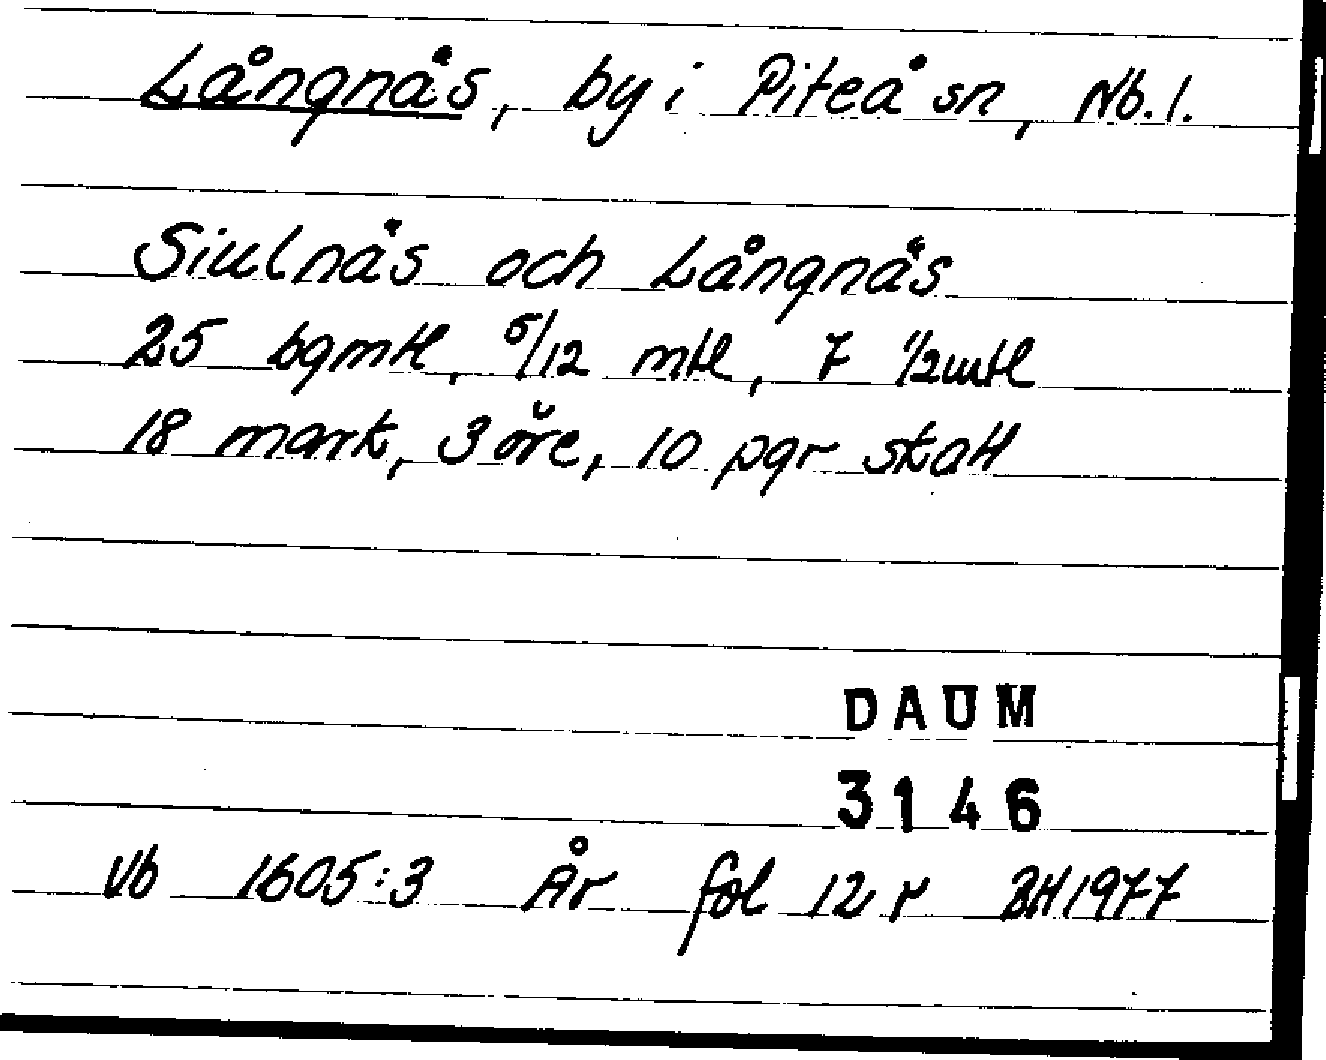 Långnäs, by i Piteå sn, Nb. l.
Siulnäs och Långnäs
25 bgmtl, 5/12 mtl, 7 1/2mtl
18 mark, 3 öre, 10 pgr skatt
DAUM
3146
Vb 1605:3 År fol 12 r BH 1977